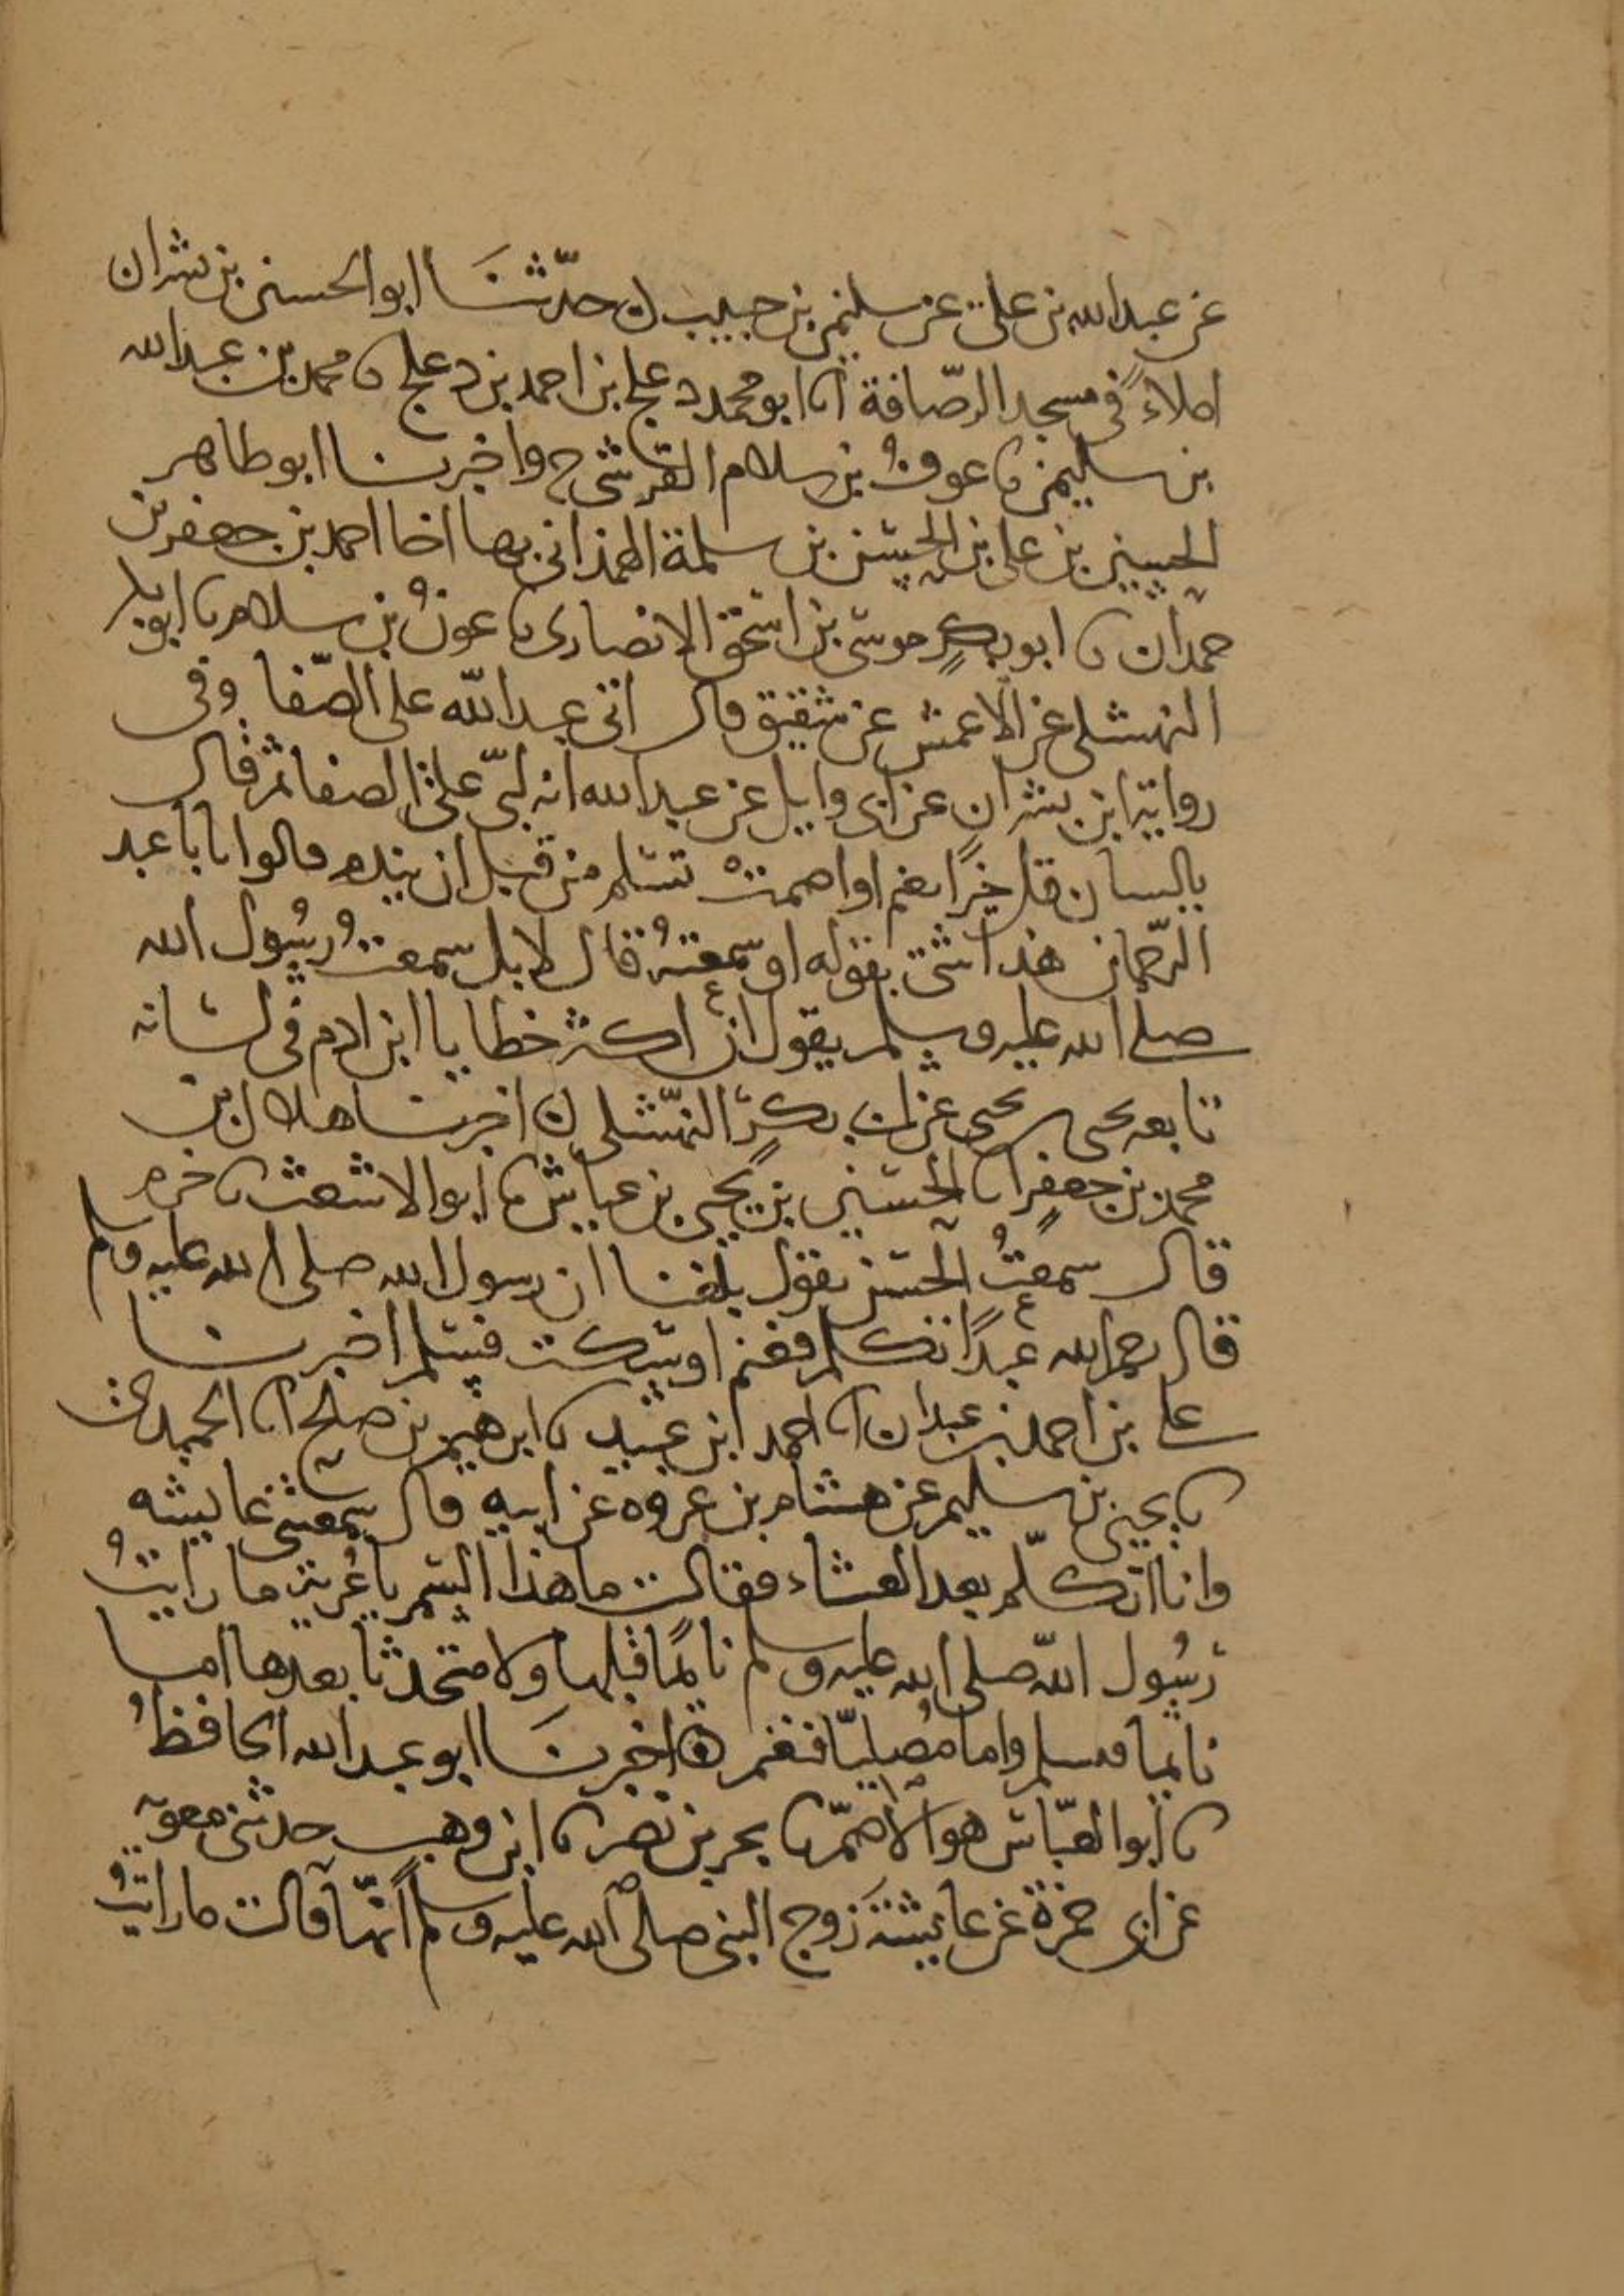 عن عبد الله بن علي عن سليمن بن حبيب ن حدّثنَا ابو الحسين بن بشران
املاءً في مسجد الرّصافة انا ابو محمد دعلج بن احمد بن دعلج نا محمد بن عبد الله
بن سليمن نا عونُ بن سلام القرشي ح واخبرنا ابو طاهر
الحسين بن علي بن الحسن بن سلمة الهمذاني بها انا احمد بن جعفر بن
حمدان نا ابو بكرٍ موسى بن اسحق الانصاري نا عونُ بن سلام نا ابو بكر
النهشلي عن الاعمش عن شقيق قال اتى عبد الله على الصّفا وفي
رواية ابن بشران عن ابي وايل عن عبد الله انه لبّى على الصفا ثم قال
يا لسان قل خيرًا تغنم او اصمت تسلم من قبل ان تندم قالوا يا با عبد
الرّحمان هذا شئ تقوله او سمعتهُ قال لا بل سمعتُ رسُول الله
صلى الله عليه وسلم يقول ان اكثر خطايا ابن ادم في لسانه
تابعه يحيى بن يحيى عن ابي بكرٍ النهّشلي ن اخبرنا هلال بن
محمد بن جعفرٍ انا الحسين بن يحيى بن عياش نا ابو الاشعث نا حزم
قال سمعتُ الحسن يقول بلغنا ان رسول الله صلى الله عليه وسلم
قال رحم الله عبدًا تكلم فغنم او سكت فسلم اخبرنا
علي بن احمد بن عبدان انا احمد ابن عبيد نا ابرهيم بن صلح انا الحميدي
نا يحيى بن سليم عن هشام بن عروه عن ابيه قال سمعتني عايشه
وانا اتكلّم بعد العشاء فقالت ما هذا السمر يا عُرية ما رايتُ
رسُول اللّه صلى الله عليه وسلم نايمًا قبلها ولا متحدثا بعدها اما
نايما فيسلم واما مُصليّا فيغنم ه اخبرنَا ابو عبد الله الحافظُ
نا ابو العبّاس هو الاصمّ نا بحر بن نصر نا ابن وهب حدثني معوية
عن ابي حمزة عن عايشةَ زوج النبي صلى الله عليه وسلم انّها قالت ما رايتُ